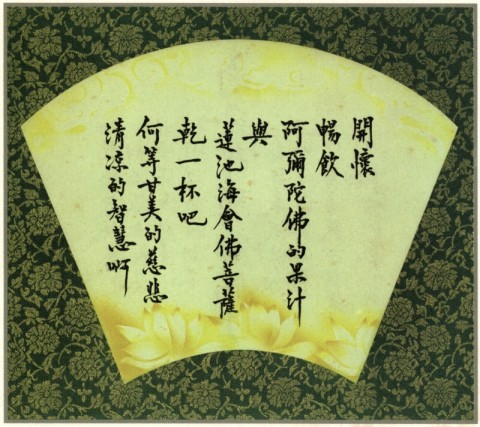 開懷
暢飲
阿彌陀佛的果汁
與
蓮池海會佛菩薩
乾一杯吧
何等甘美的慈悲
清凉的智慧啊